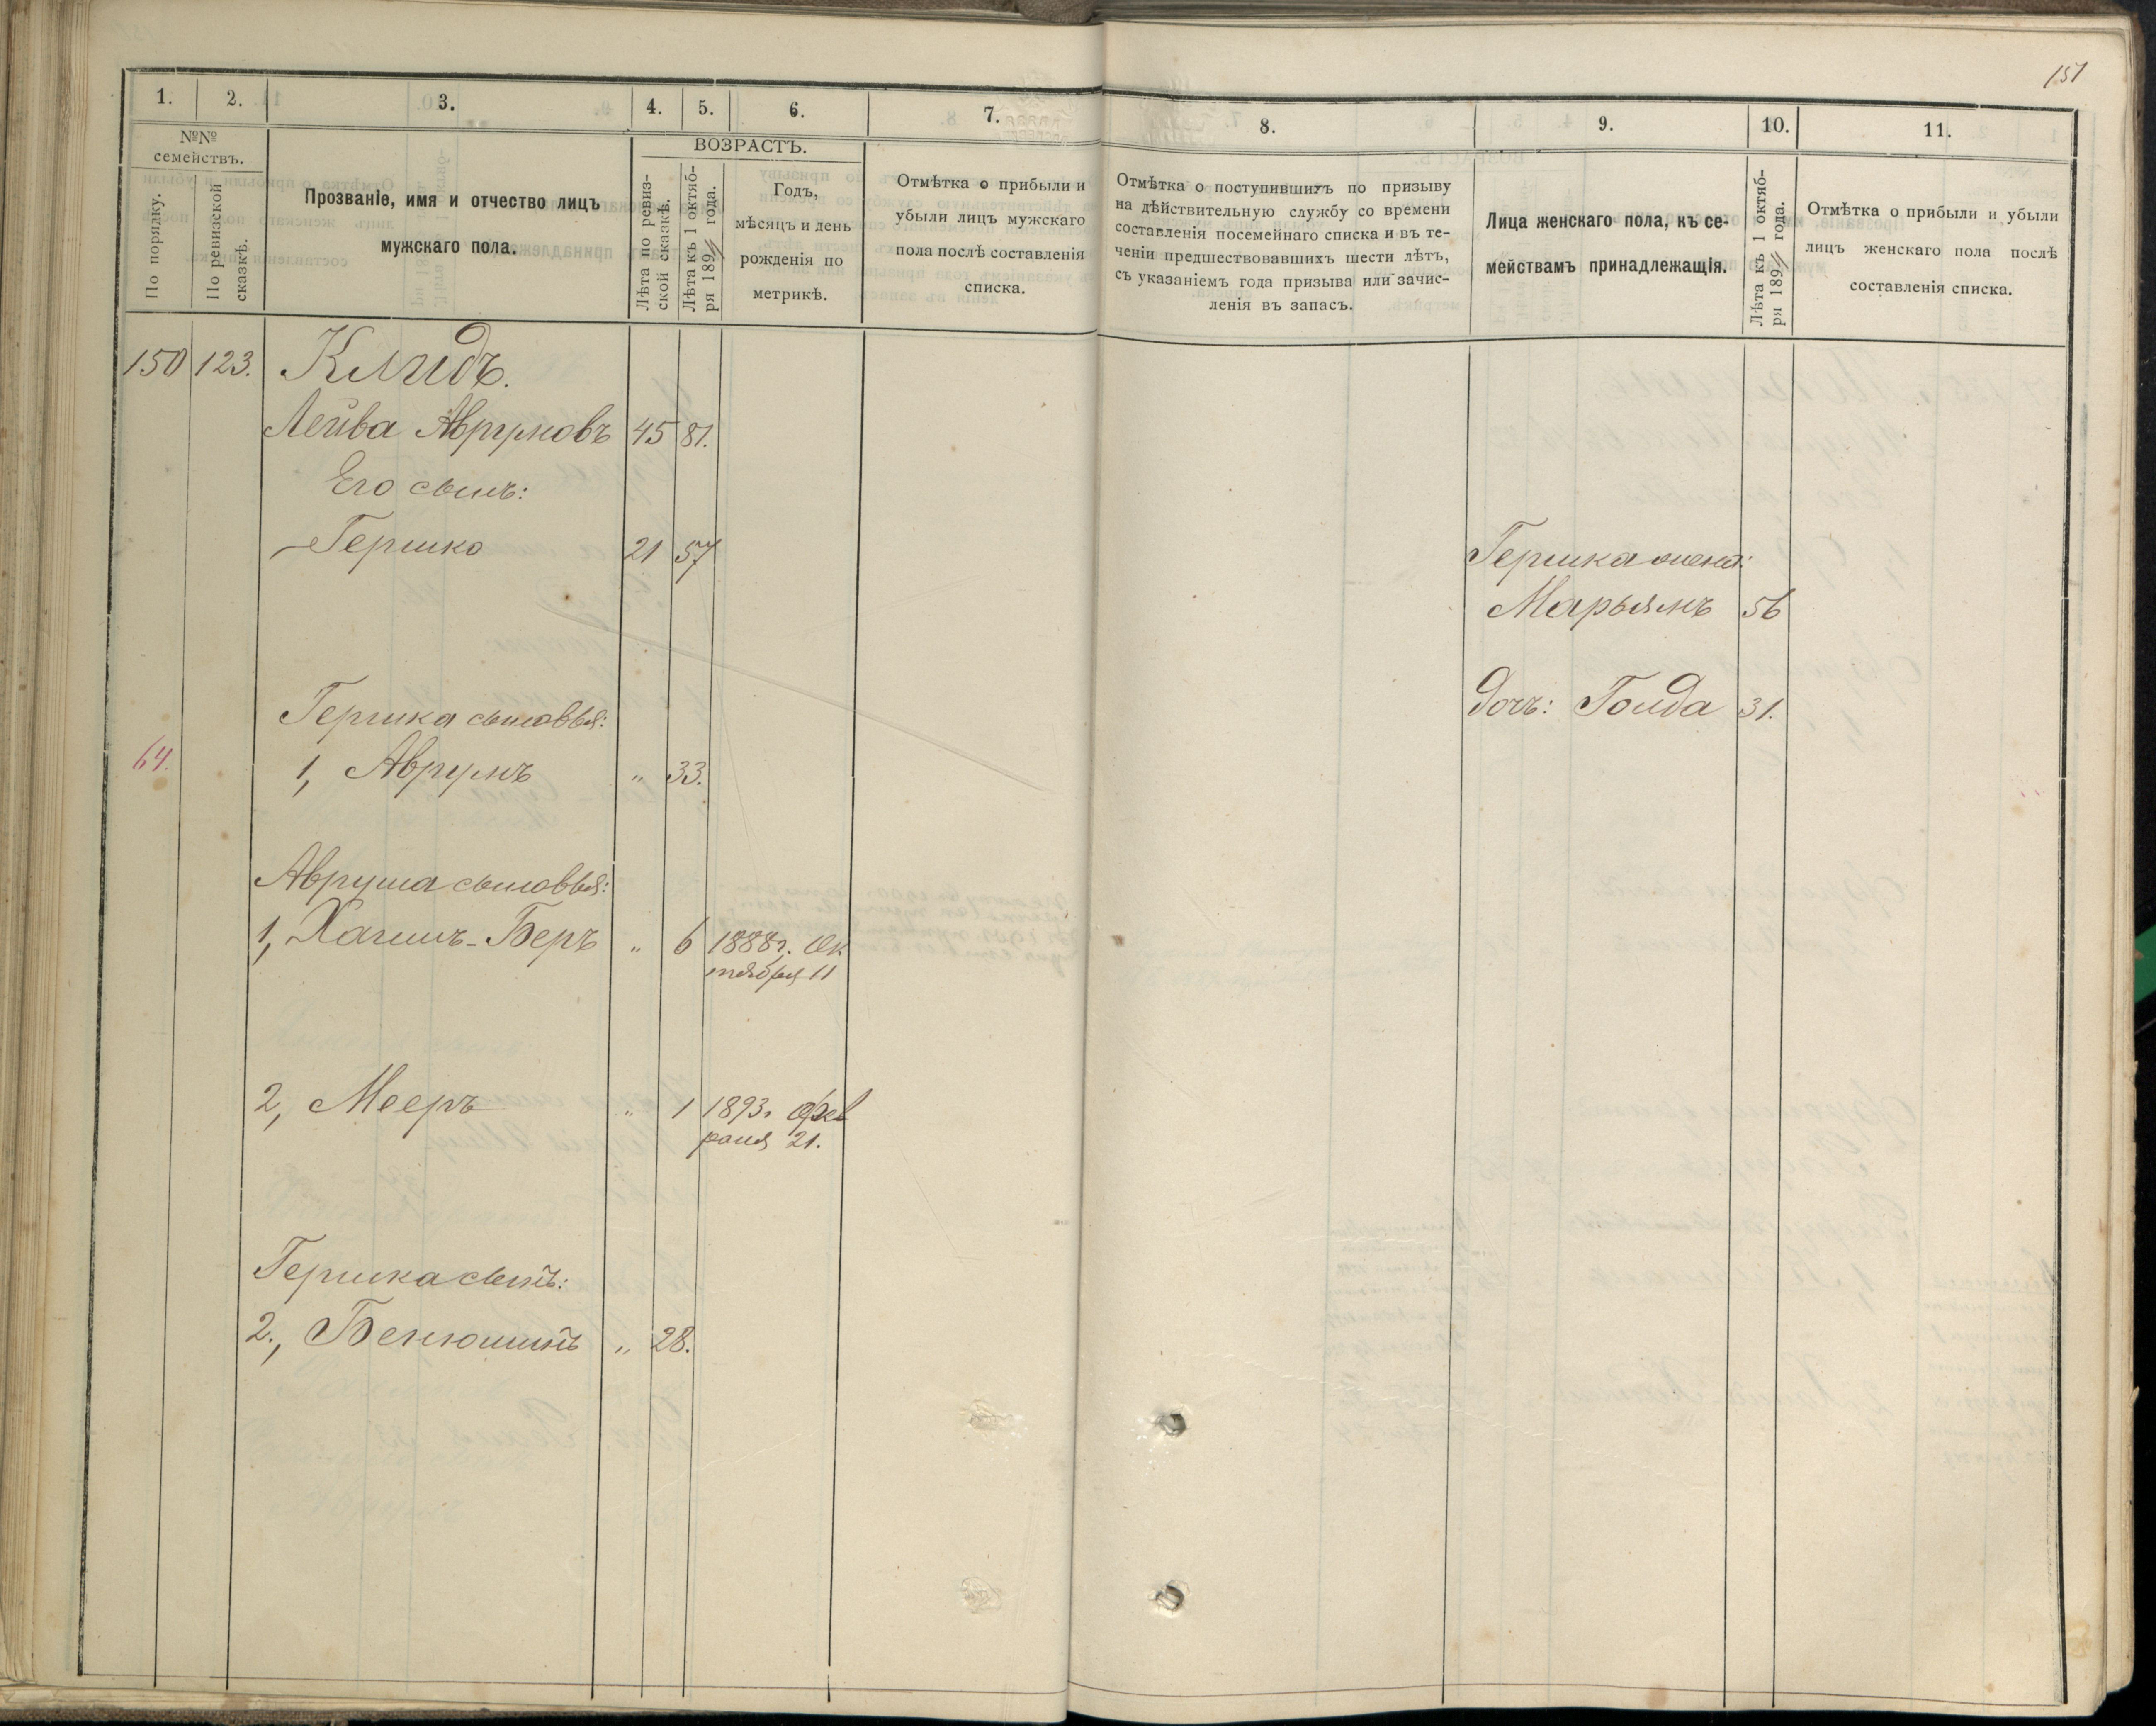 151
1. 2. 3. 4. 5. 6. 7. 8. 9. 10. 11.
№№ семействъ.
По порядку.
По ревизской сказкѣ.
Прозваніе, имя и отчество лицъ
мужскаго пола.
ВОЗРАСТЪ.
Лѣта по ревиз-
ской сказкѣ.
Лѣта къ 1 октяб-
ря 1894 года.
Годъ,
мѣсяцъ и день
рожденія по
метрикѣ.
Отмѣтка о прибыли и
убыли лицъ мужскаго
пола послѣ составленія
списка.
Отмѣтка о поступившихъ по призыву
на дѣйствительную службу со времени
составленія посемейнаго списка и въ те-
ченіи предшествовавшихъ шести лѣтъ,
съ указаніемъ года призыва или зачис-
ленія въ запасъ.
Лица женскаго пола, къ се-
мействамъ принадлежащія.
Лѣта къ 1 октяб-
ря 1894 года.
Отмѣтка о прибыли и убыли
лицъ женскаго пола послѣ
составленія списка.
150 123.
Лейба Аврумовъ 45 81.
Его сынъ:
Гершко 21 57
Гершка жена:
Марьямъ 56
Гершка сыновья:
Дочь: Голда 31.
64. 1, Аврумъ " 33.
Аврума сыновья:
1, Хаимъ-Беръ " 6 1888г. Ок
тября 11
2, Мееръ " 1 1893г. Фев
раля 21.
Гершка сынъ:
2., Бенюминъ " 28.